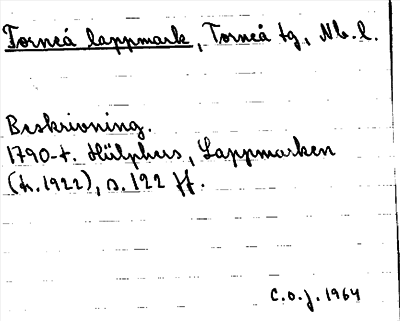 Torneå lappmark, Torneå tg, Nb. l.
Beskrivning.
1790-t. Hülphers, Lappmarken
(tr. 1922), s. 122 ff.
C.O.J. 1964